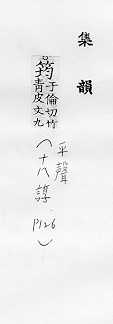 集韻
筠于倫切竹
青皮文九
(平聲
十八諄
P126)